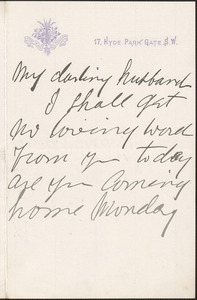 17, HYDE PARK GATE. S.W.
My darling husband
I shall get
no loving word
from you today
are you coming
home Monday